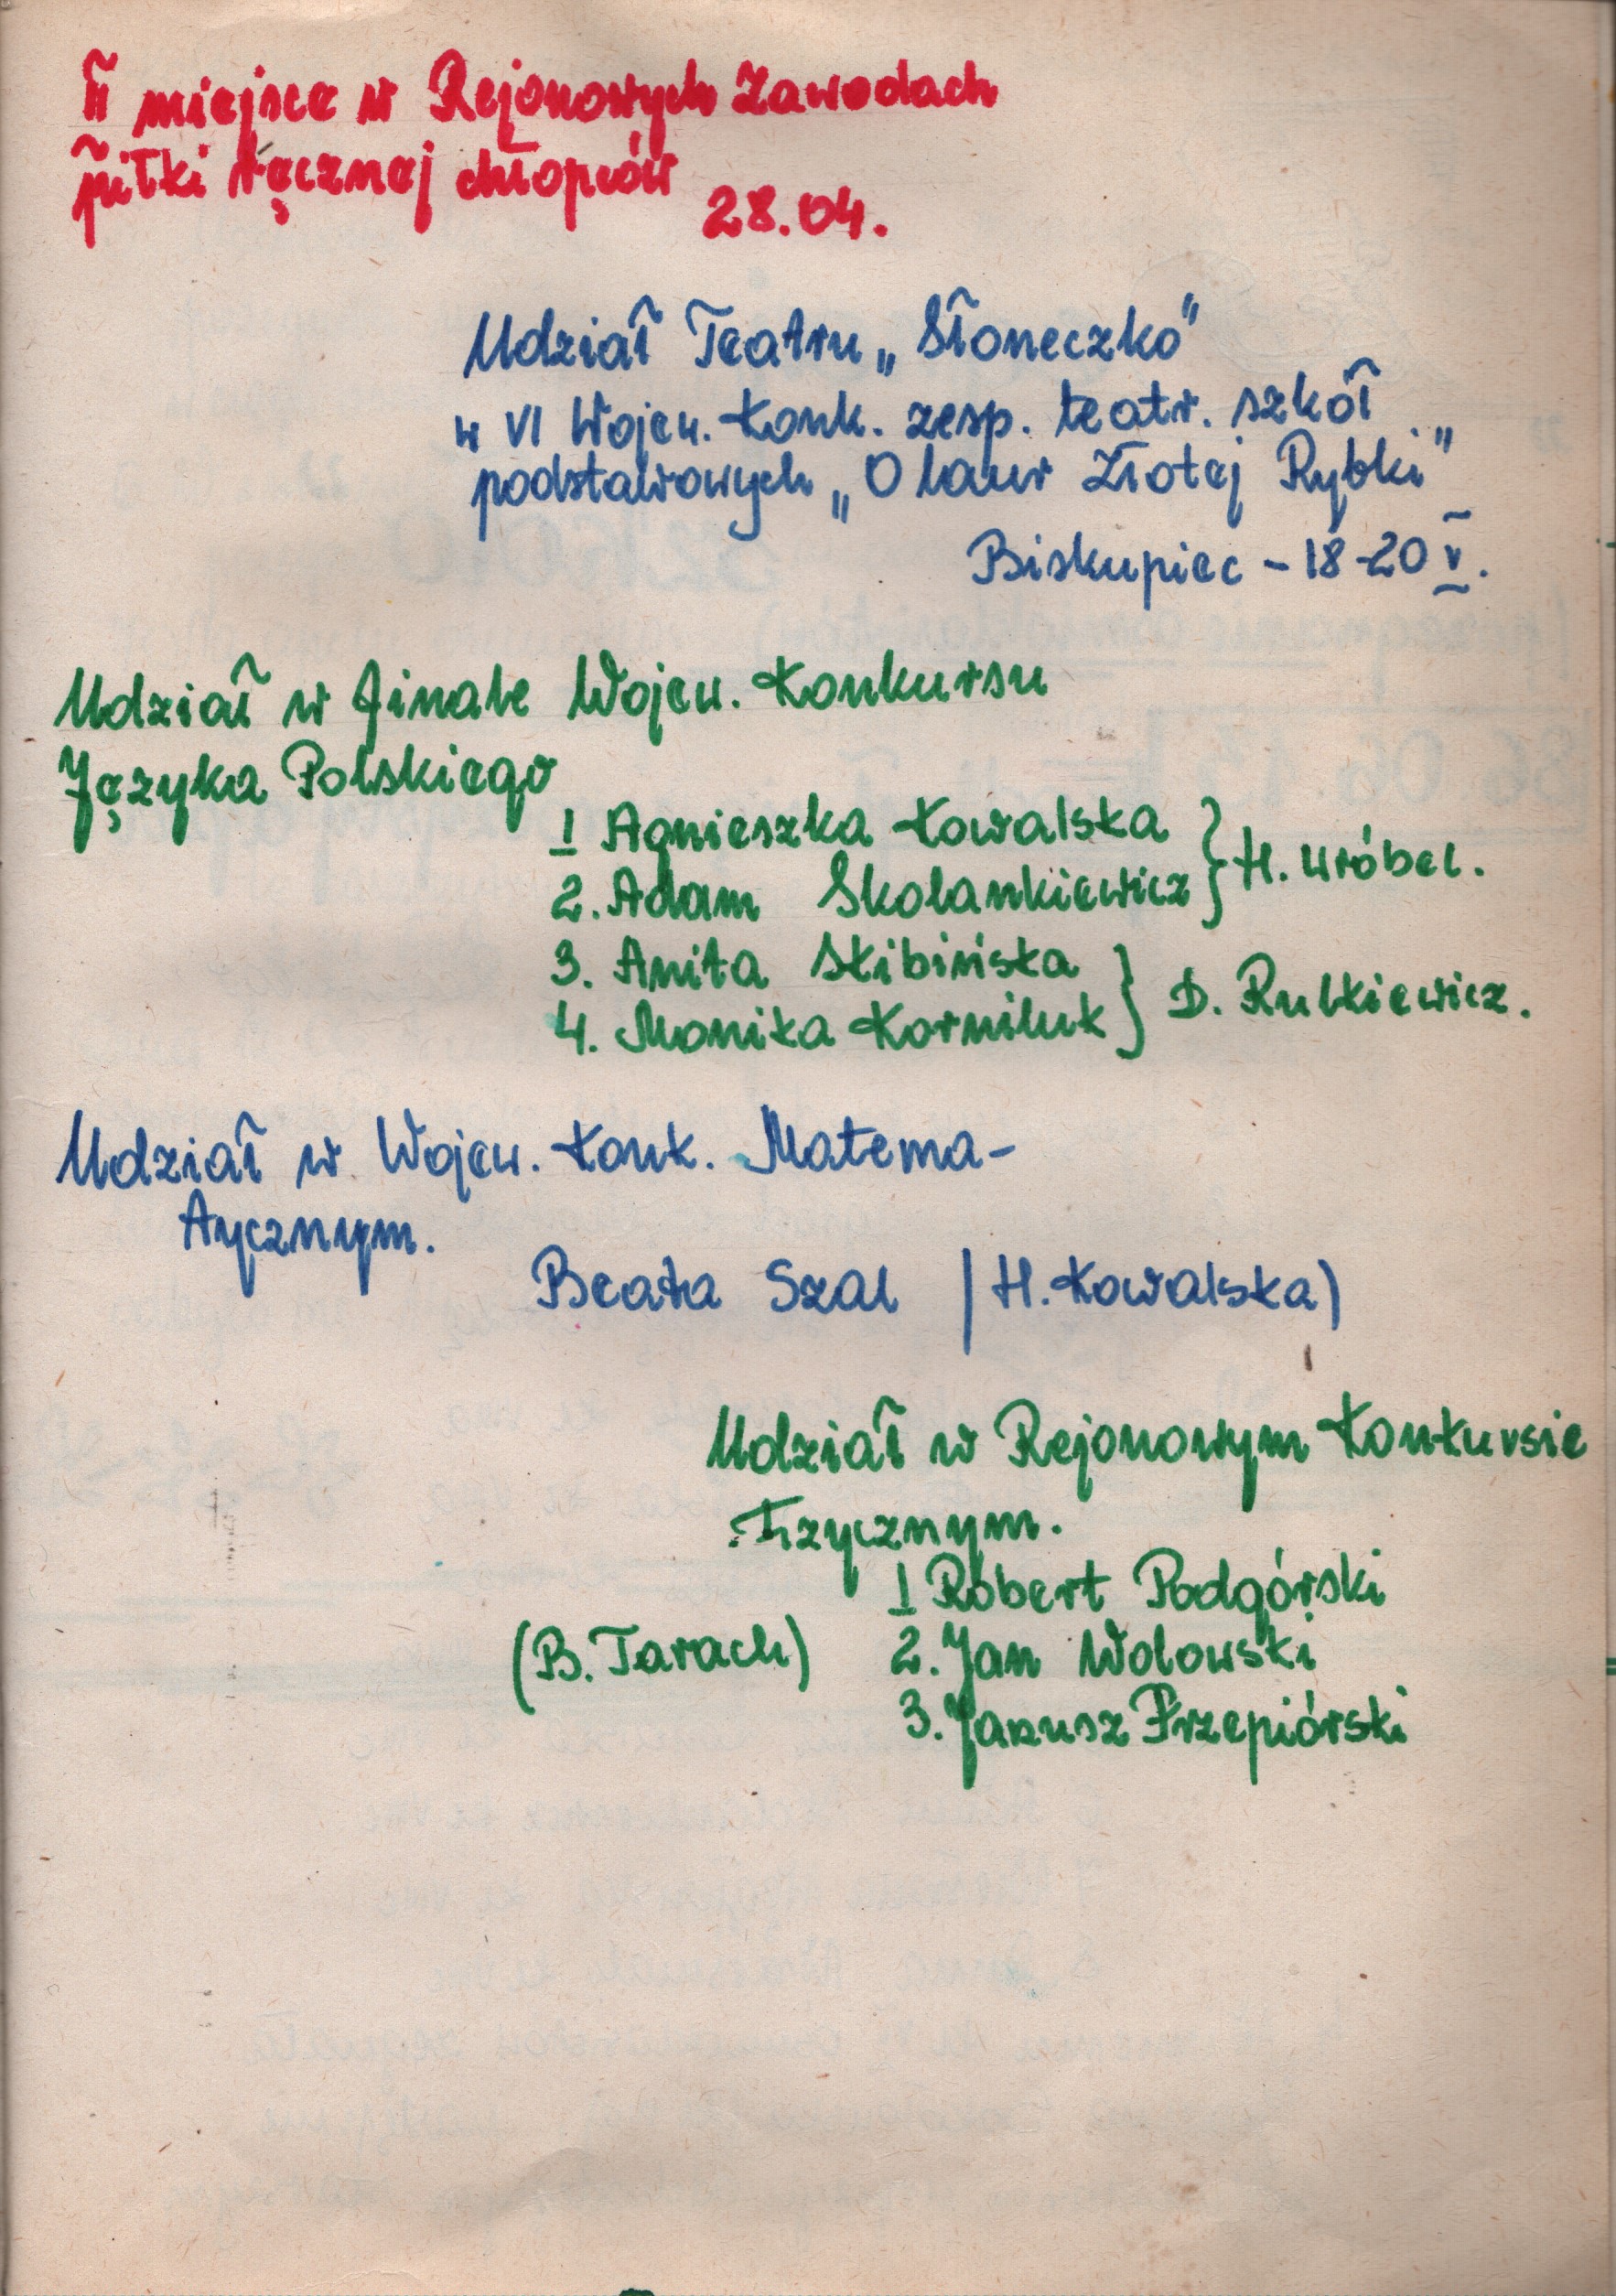 II miejsce w Rejonowych Zawodach
piłki ręcznej chłopców
28.04.
Udział Teatru „Słoneczko"
w VI Wojew. Konk. zesp. teatr. szkół
podstawowych „O laur Złotej Rybki"
Biskupiec - 18-20 V.
Udział w finale Wojew. Konkursu
Języka Polskiego
1 Agnieszka Kowalska
2. Adam Skolankiewicz } H. Wróbel.
3. Anita Skibińska
4. Monika Korniluk } D. Rutkiewicz.
Udział w Wojew. Konk. Matema-
tycznym.
Beata Szal (H. Kowalska)
Udział w Rejonowym Konkursie
Fizycznym.
1 Robert Podgórski
(B. Tarach) 2. Jan Wolowski
3. Janusz Przepiórski